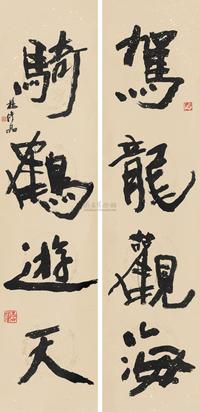 駕龍觀海
騎鶴遊天